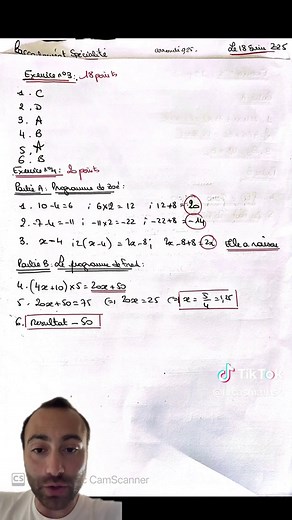 Le 18 Juin 2025
Exercice n°3: 18 points
1. C
2. D
3. A
4. B
5. A
6. B
Exercice n°4: 20 points
Partie A: Programme de Zoé:
1. 10-4=6 ; 6x2=12 ; 12+8=20
2. -7-4=-11 ; -11x2=-22 ; -22+8=-14
3. x-4 ; 2(x-4)=2x-8 ; 2x-8+8=2x elle a raison
Partie B: Le programme de Fred:
4. (4x+10)x5=20x+50
5. 20x+50=75 (=) 20x=25 (=) x=5/4=1,25
6. resultat - 50
TikTok
CS CamScanner